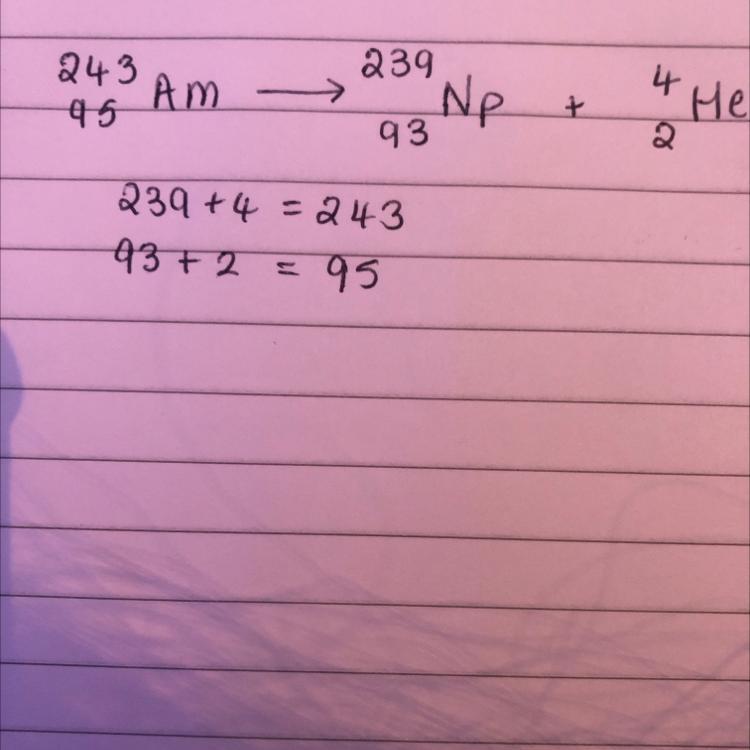 ²⁴³₉₅Am ⟶ ²³⁹₉₃Np + ⁴₂He
239 + 4 = 243
93 + 2 = 95